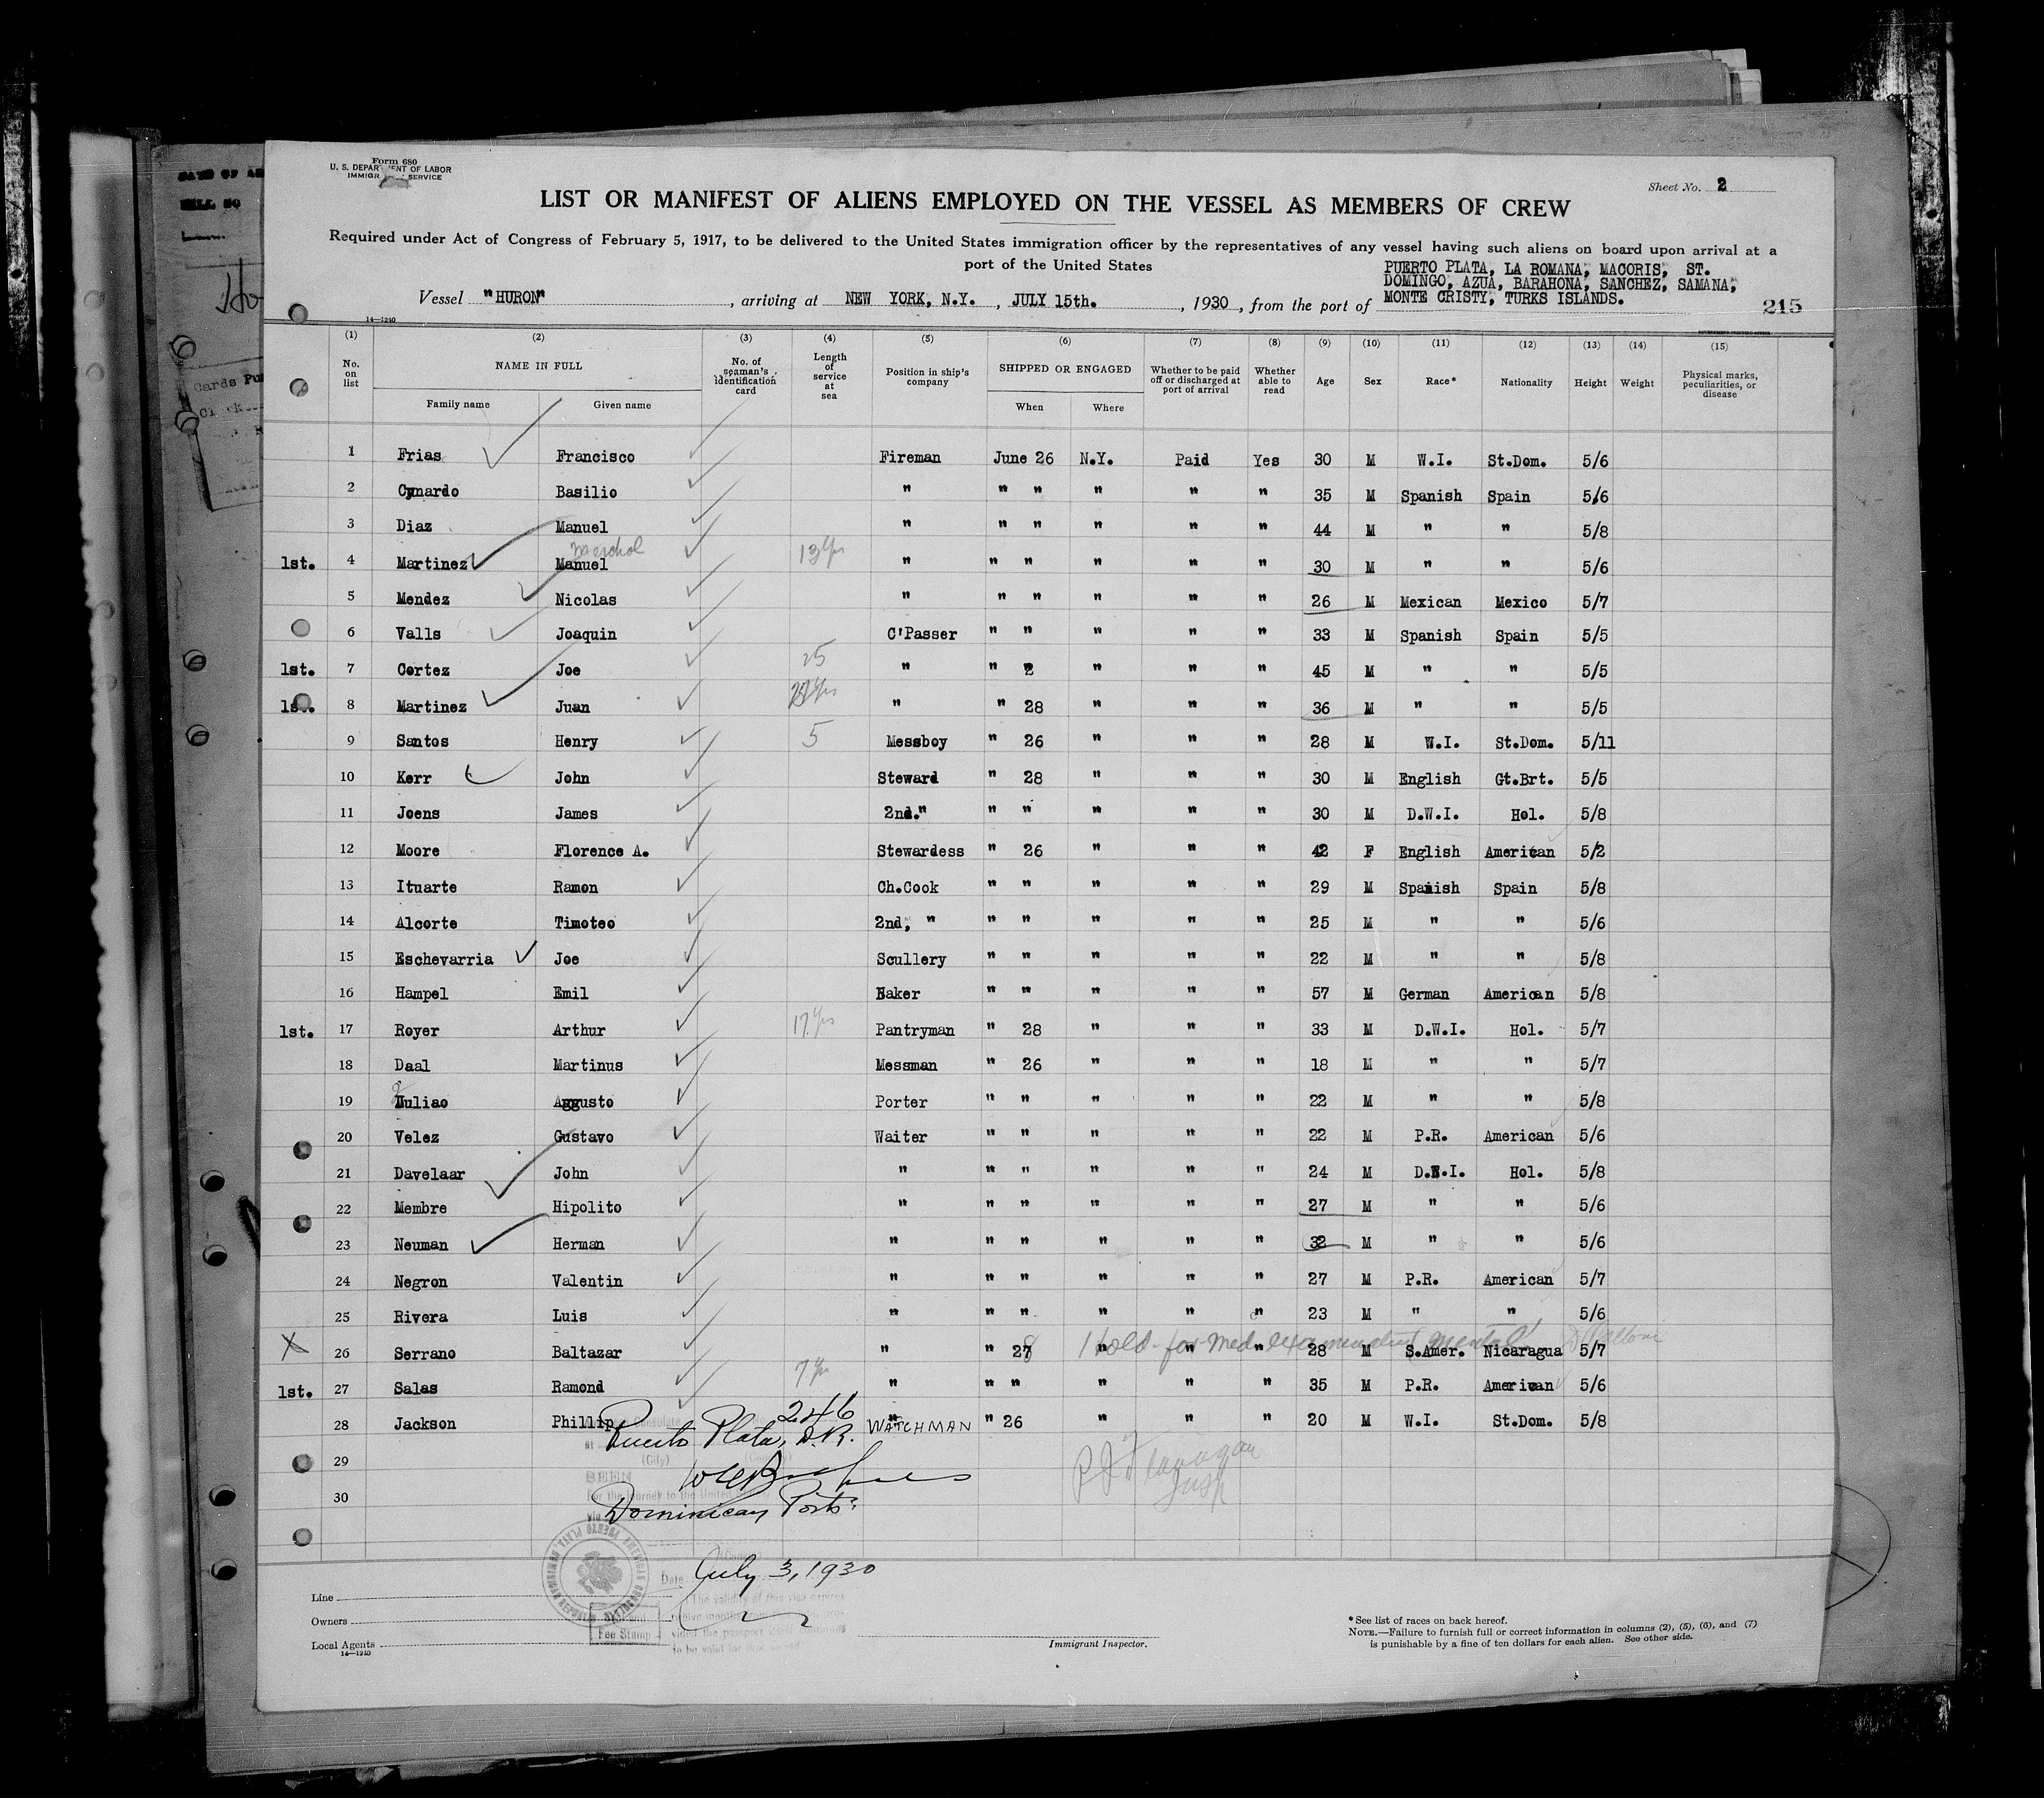 Form 680
U. S. DEPARTMENT OF LABOR
IMMIGRATION SERVICE
Sheet No. 2
LIST OR MANIFEST OF ALIENS EMPLOYED ON THE VESSEL AS MEMBERS OF CREW
Required under Act of Congress of February 5, 1917, to be delivered to the United States immigration officer by the representatives of any vessel having such aliens on board upon arrival at a
port of the United States
PUERTO PLATA, LA ROMANA, MACORIS, ST.
DOMINGO, AZUA, BARAHONA, SANCHEZ, SAMANA,
MONTE CRISTY, TURKS ISLANDS.
Vessel "HURON", arriving at NEW YORK, N.Y., JULY 15th., 1930, from the port of
215
14—1240
(1) (2) (3) (4) (5) (6) (7) (8) (9) (10) (11) (12) (13) (14) (15)
No. on list NAME IN FULL No. of seaman's identification card Length of service at sea Position in ship's company SHIPPED OR ENGAGED Whether to be paid off or discharged at port of arrival Whether able to read Age Sex Race* Nationality Height Weight Physical marks, peculiarities, or disease
Family name Given name When Where
1 Frias Francisco Fireman June 26 N.Y. Paid Yes 30 M W.I. St.Dom. 5/6
2 Cynardo Basilio " " " " " " 35 M Spanish Spain 5/6
3 Diaz Manuel " " " " " " 44 M " " 5/8
1st. 4 Martinez Manuel 13 yrs " " " " " " 30 M " " 5/6
5 Mendez Nicolas " " " " " " 26 M Mexican Mexico 5/7
6 Valls Joaquin C'Passer " " " " " 33 M Spanish Spain 5/5
1st. 7 Cortez Joe 25 " " 2 " " " 45 M " " 5/5
1st. 8 Martinez Juan yrs " " 28 " " " 36 M " " 5/5
9 Santos Henry 5 Messboy " 26 " " " 28 M W.I. St.Dom. 5/11
10 Kerr John Steward " 28 " " " 30 M English Gt.Brt. 5/5
11 Joens James 2nd." " " " " " 30 M D.W.I. Hol. 5/8
12 Moore Florence A. Stewardess " 26 " " " 42 F English American 5/2
13 Ituarte Ramon Ch.Cook " " " " " 29 M Spanish Spain 5/8
14 Alcorte Timoteo 2nd, " " " " " " 25 M " " 5/6
15 Eschevarria Joe Scullery " " " " " 22 M " " 5/8
16 Hampel Emil Baker " " " " " 57 M German American 5/8
1st. 17 Royer Arthur 17 yrs Pantryman " 28 " " " 33 M D.W.I. Hol. 5/7
18 Daal Martinus Messman " 26 " " " 18 M " " 5/7
19 Juliao Augusto Porter " " " " " 22 M " " 5/8
20 Velez Gustavo Waiter " " " " " 22 M P.R. American 5/6
21 Davelaar John " " " " " " 24 M D.W.I. Hol. 5/8
22 Membre Hipolito " " " " " " 27 M " " 5/6
23 Neuman Herman " " " " " " 32 M " " 5/6
24 Negron Valentin " " " " " " 27 M P.R. American 5/7
25 Rivera Luis " " " " " " 23 M " " 5/6
Hold for Med. examination mental
X 26 Serrano Baltazar " " 28 " " " 28 M S.Amer. Nicaragua 5/7
1st. 27 Salas Ramond 7 yr " " " " " " 35 M P.R. American 5/6
28 Jackson Phillip WATCHMAN " 26 " " " 20 M W.I. St.Dom. 5/8
246
Puerto Plata, D.R.
29
30
(City)
BEEN
For the journey to the United
Dominican Ports
P J Flanagan
Insp
Date July 3, 1930
The validity of this visa expires
twelve months
vided the passport itself continues
to be valid for
Fee Stamp
Line
Owners
Local Agents
14—1240
Immigrant Inspector.
*See list of races on back hereof.
NOTE.—Failure to furnish full or correct information in columns (2), (5), (6), and (7)
is punishable by a fine of ten dollars for each alien. See other side.